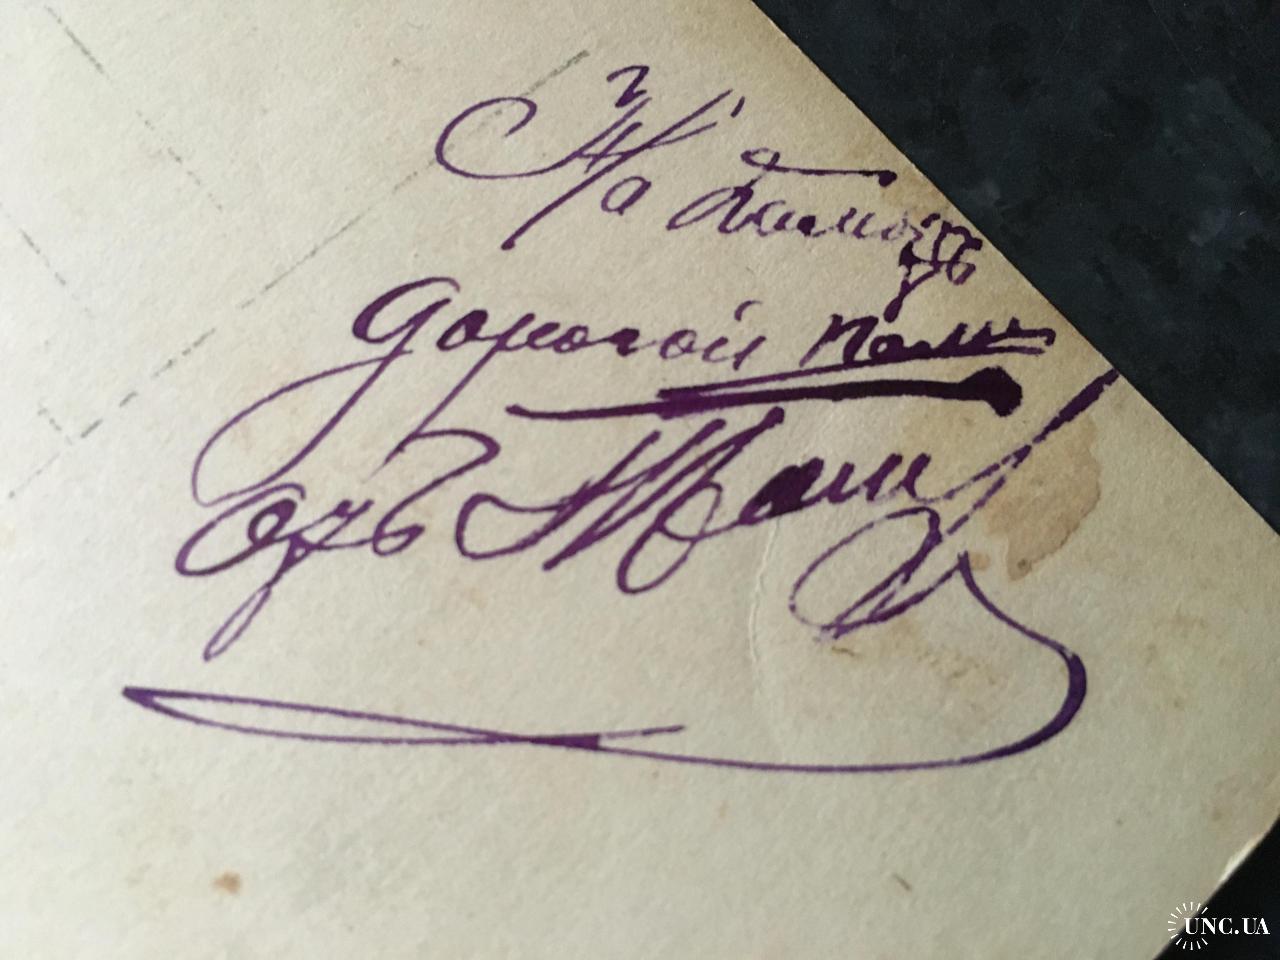 На память
дорогой Поли
отъ Тани
UNC.UA